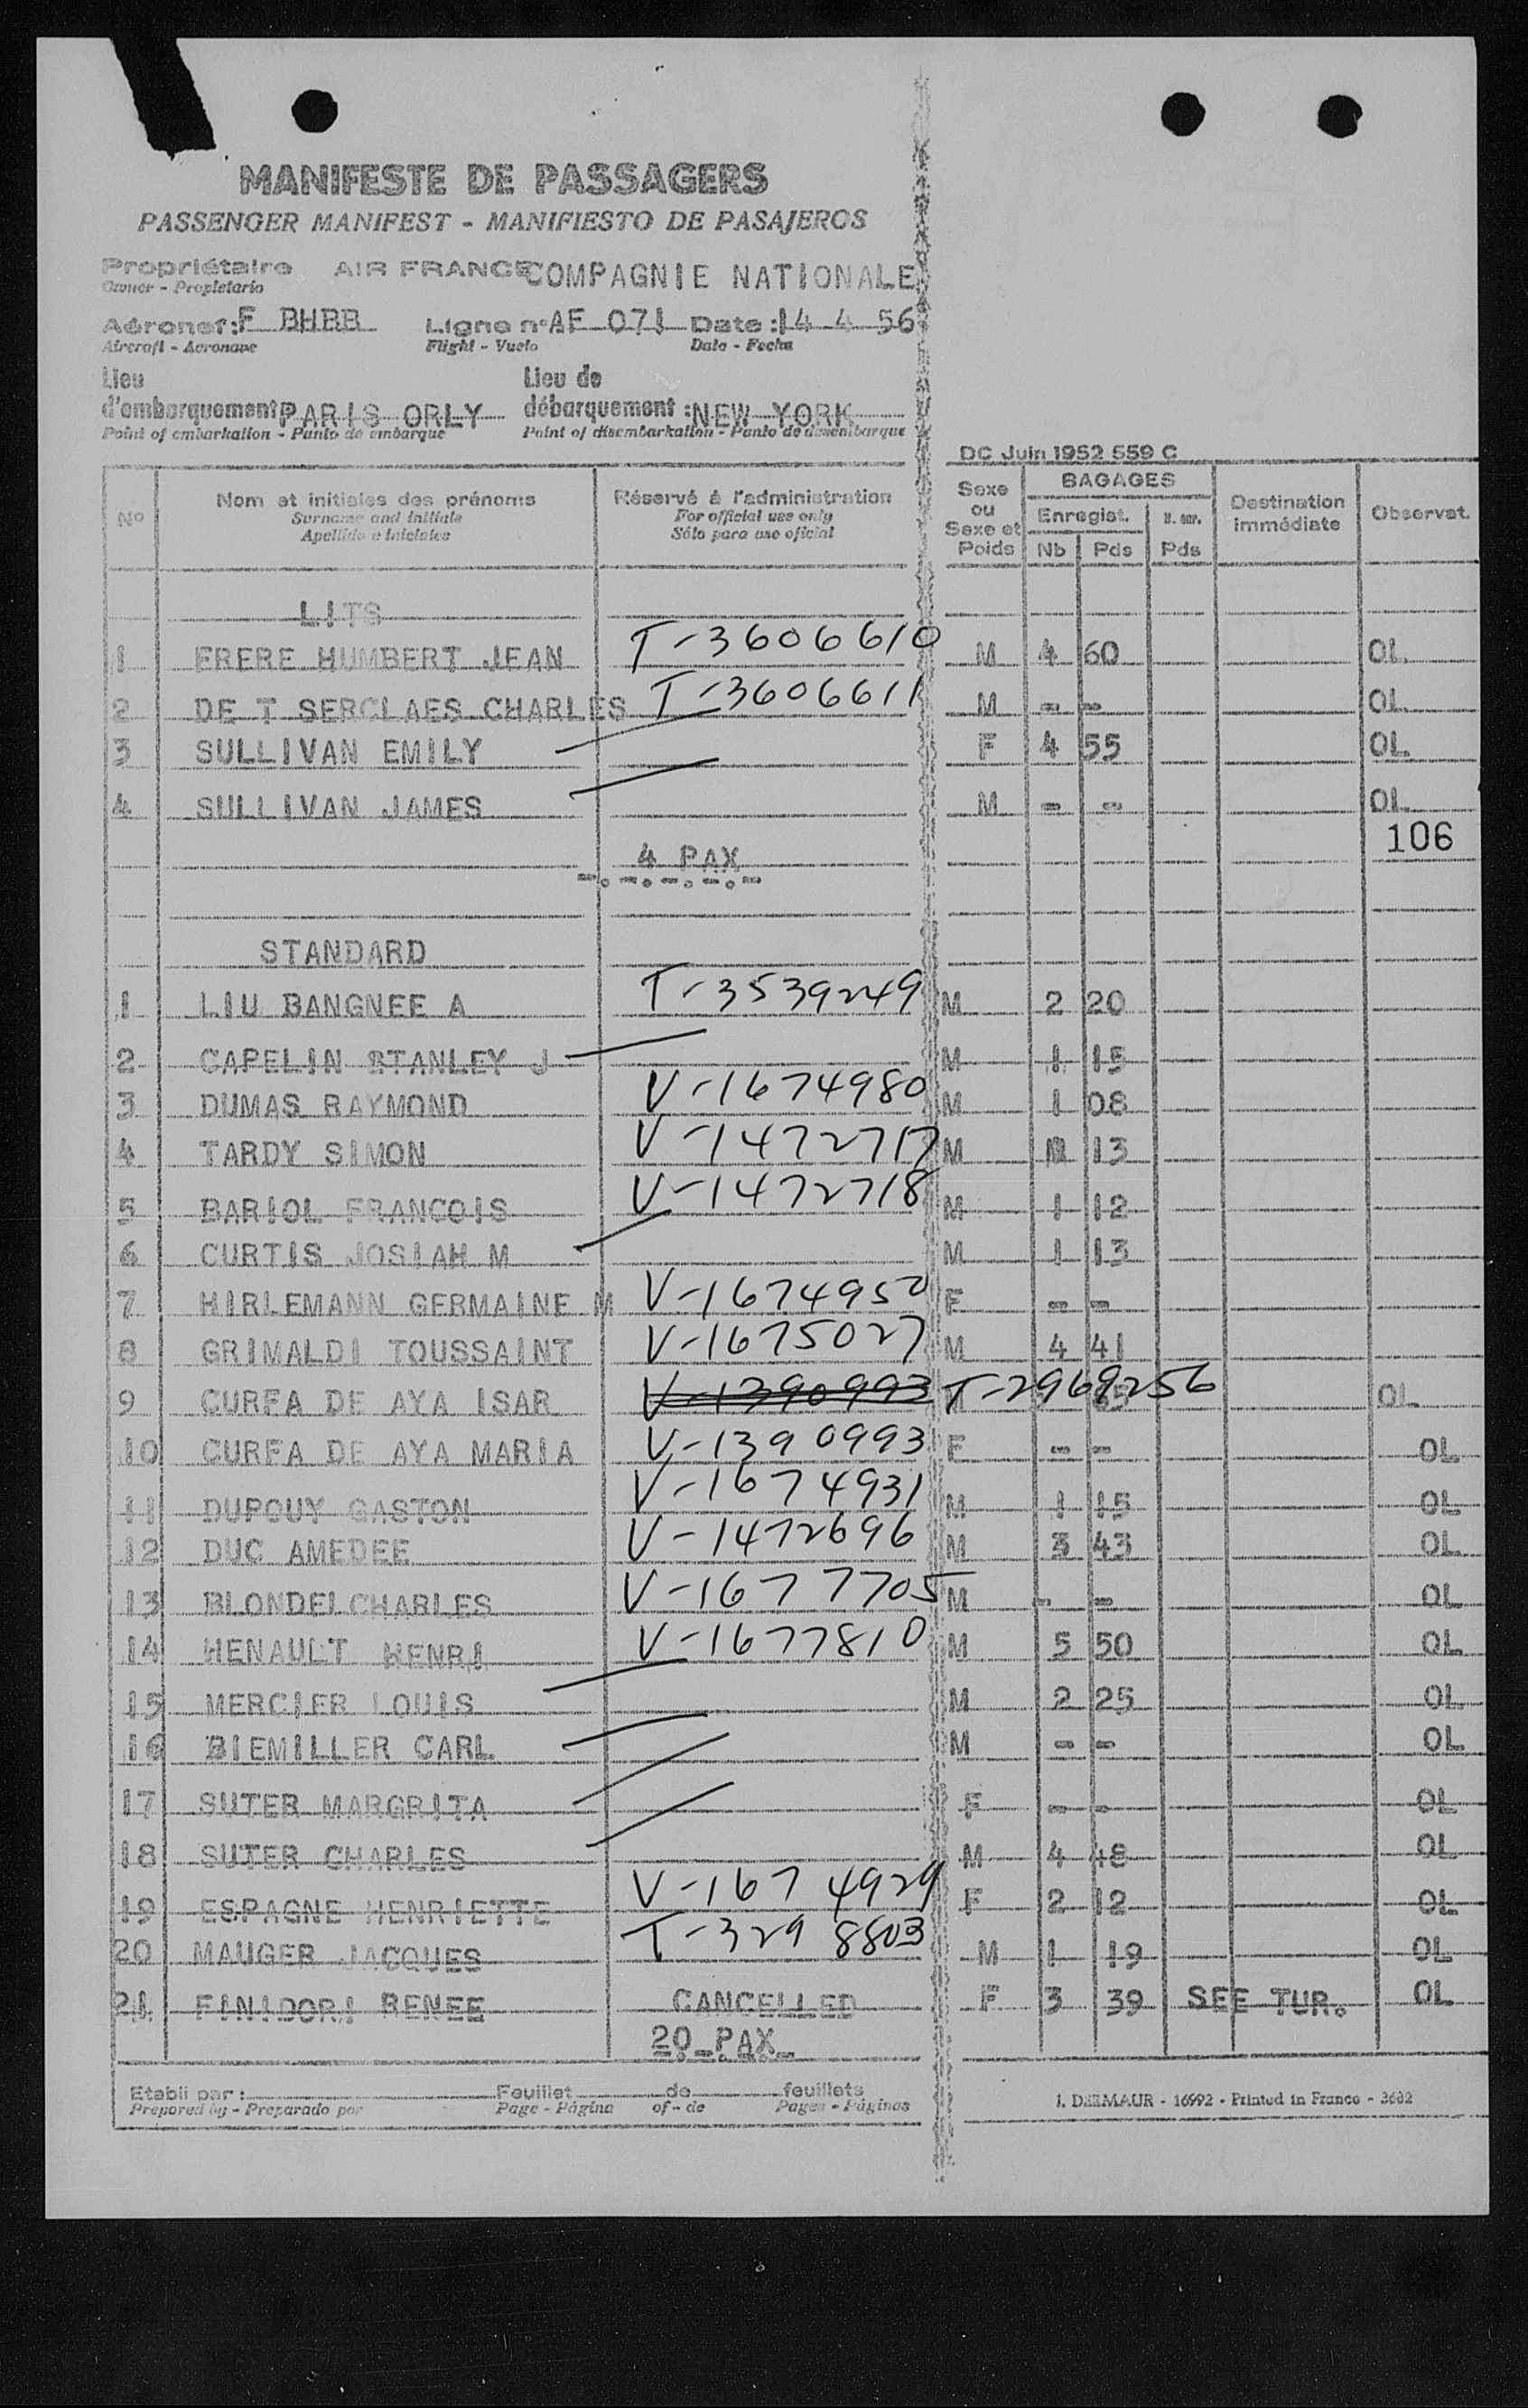 MANIFESTE DE PASSAGERS
PASSENGER MANIFEST - MANIFIESTO DE PASAJEROS
Propriétaire AIR FRANCE COMPAGNIE NATIONALE
Owner - Propietario
Aéronef: F BHBB Ligne n° AF 071 Date: 14 4 56
Aircraft - Aeronave Flight - Vuelo Date - Fecha
Lieu Lieu de
d'embarquement PARIS ORLY débarquement: NEW YORK
Point of embarkation - Punto de embarque Point of disembarkation - Punto de desembarque
DC Juin 1952 559 C
N° Nom et initiales des prénoms Réservé à l'administration Sexe ou Sexe et Poids BAGAGES Destination immédiate Observat.
Surname and initials For official use only Enregist.
Apellido e iniciales Sólo para uso oficial Nb Pds Pds
LITS
1 FRERE HUMBERT JEAN T-3606610 M 4 60 OL
2 DE T SERCLAES CHARLES T-3606611 M - - OL
3 SULLIVAN EMILY F 4 55 OL
4 SULLIVAN JAMES M - - OL
106
4 PAX
-.-.-.-.-
STANDARD
1 LIU BANGNEE A T-3539249 M 2 20
2 CAPELIN STANLEY J M 1 15
3 DUMAS RAYMOND V-1674980 M 1 08
4 TARDY SIMON V-1472717 M 13
5 BARIOL FRANCOIS V-1472718 M 1 12
6 CURTIS JOSIAH M M 1 13
7 HIRLEMANN GERMAINE M V-1674950 F - -
8 GRIMALDI TOUSSAINT V-1675027 M 4 41
9 CUREA DE AYA ISAR V-1390993 T-2969256 OL
10 CUREA DE AYA MARIA V-1390993 F - - OL
11 DUPOUY GASTON V-1674931 M 1 15 OL
12 DUC AMEDEE V-1472696 M 3 43 OL
13 BLONDEL CHARLES V-1677705 M - - OL
14 HENAULT HENRI V-1677810 M 5 50 OL
15 MERCIER LOUIS M 2 25 OL
16 BIEMILLER CARL M - - OL
17 SUTER MARGRITA F - - OL
18 SUTER CHARLES M 4 48 OL
19 ESPAGNE HENRIETTE V-1674929 F 2 12 OL
20 MAUGER JACQUES T-3298803 M 1 19 OL
21 FINIDORI RENEE CANCELLED F 3 39 SEE TUR. OL
20 PAX
Etabli par: Feuillet de feuillets
Prepared by - Preparado por Page - Página of - de Pages - Páginas
J. DERMAUR - 16992 - Printed in France - 3682